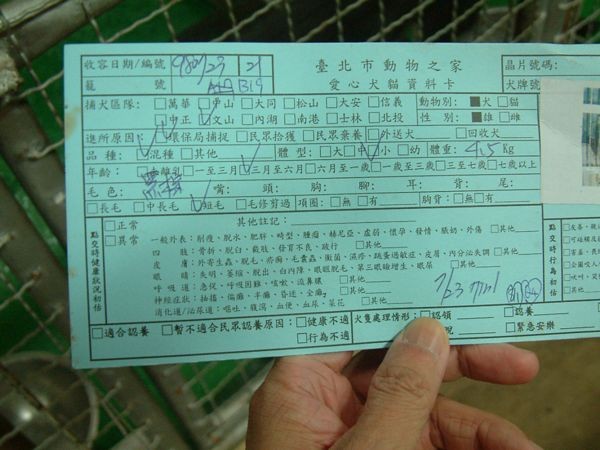 收容日期/編號 980723 21 臺北市動物之家 晶片號碼:
籠 號 B19 愛心犬貓資料卡 犬牌號
捕犬區隊: □萬華 □中山 □大同 □松山 □大安 □信義 動物別: ■犬 □貓
□中正 □文山 □內湖 □南港 □士林 □北投 性 別: ■雄 □雌
進所原因: □環保局捕捉 □民眾拾獲 □民眾棄養 □外送犬 □回收犬
品 種: □混種 □其他 體 型: □大 □中 □小 □幼 體重: 4.5 Kg
年齡: □離乳 □一至三月 □三月至六月 □六月至一歲 □一歲至三歲 □三至七歲 □七歲以上
毛 色: 黑棕 嘴: 頭: 胸: 腳: 耳: 背: 尾:
□長毛 □中長毛 □短毛 □毛修剪過 項圈: □無 □有 胸背: □無 □有
點交時健康狀況初估 □正常 其他註記:
□異常 一般外表: 削瘦、脫水、肥胖、畸型、腫瘤、赫尼亞、虛弱、懷孕、發情、脹奶、外傷 □其他
四 肢: 骨折、脫臼、截肢、發育不良、跛行 □其他
皮 膚: 外寄生蟲、脫毛、疥癬、毛囊蟲、黴菌、濕疹、跳蚤過敏症、皮屑、內分泌失調 □其他
眼 睛: 失明、萎縮、脫出、白內障、眼瞼脫毛、第三眼瞼增生、眼屎 □其他
呼 吸 道: 急促、呼吸困難、咳嗽、流鼻膿 □其他
神經症狀: 抽搐、偏癱、半癱、昏迷、全癱 □其他
消化道/泌尿道: 嘔吐、腹瀉、血便、血尿、菜花 □其他
7/23
點交時行為初估
□適合認養 □暫不適合民眾認養原因: □健康不適 犬隻處理情形: □認領 □認養
□行為不適 □緊急安樂